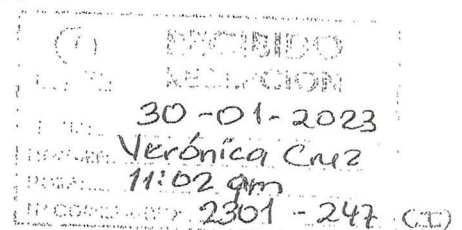 RECIBIDO
RECEPCION
30-01-2023
Verónica Cruz
11:02 am
2301 - 247 (CI)